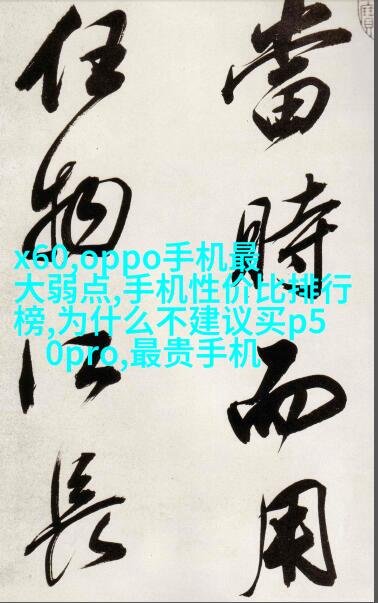 當時而用
任物長
x60,oppo手机最
大弱点,手机性价比排行
榜,为什么不建议买p5
0pro,最贵手机